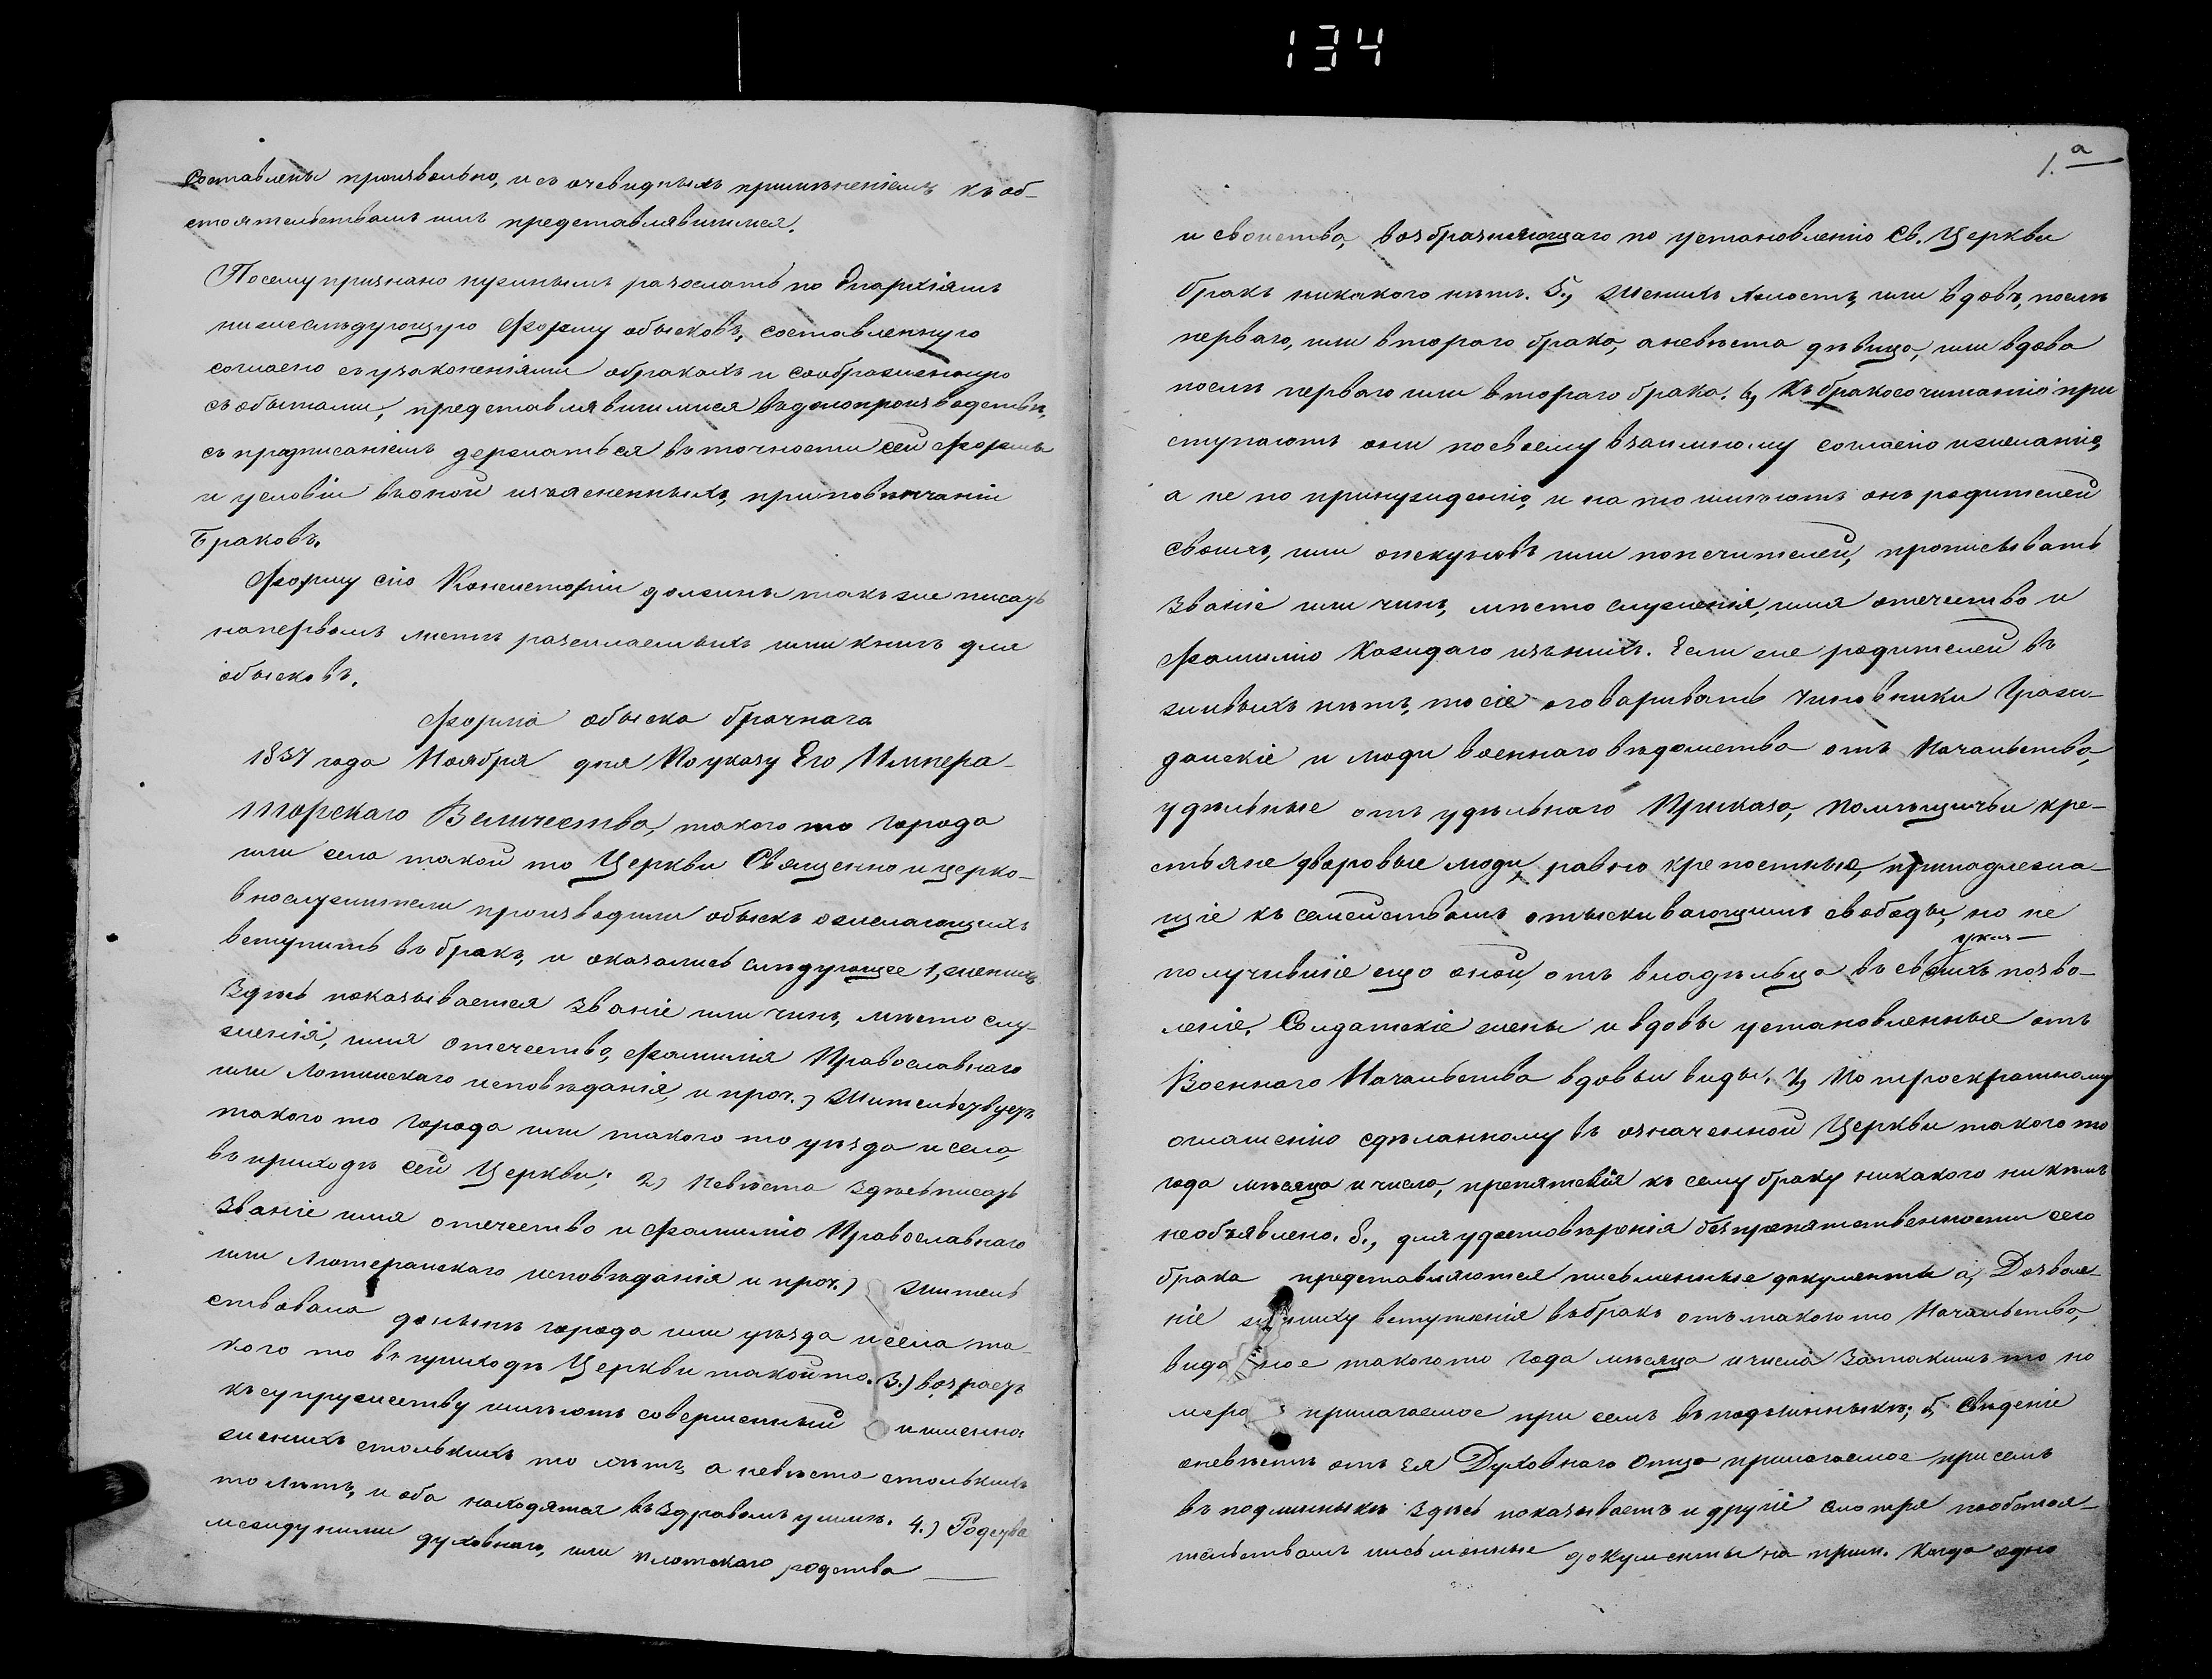 134
составлены произвольно, и съ очевиднымъ примѣненіемъ къ об-
стоятельствамъ имъ представлявшимся.
Посему признано нужнымъ разослать по Епархіямъ
нижеслѣдующую Форму обысковъ, составленную
согласно съ узаконеніями о бракахъ и соображенную
съ обытами, представлявшимися въ дѣлопроизводствѣ,
съ предписаніемъ держаться въ точности сей формы
и условіи въ оной изъясненныхъ, при повѣнчаніи
Браковъ.
Форму сію Консисторіи должны также писать
на первомъ листѣ разсылаемыхъ ими книгъ для
обысковъ.
Форма обыска брачнаго
1837 года Ноября дня По указу Его Импера-
торскаго Величества, такого то города
или села такой то Церкви Священно и церко-
внослужители производили обыскъ о желающихъ
вступить въ бракъ, и оказалось слѣдующее 1, женихъ
Здѣсь показывается званіе или чинъ, мѣсто слу-
женія, имя отечество, фамилія Православнаго
или Латинскаго исповѣданія, и проч.) Жительствуетъ
такого то города или такого то уѣзда и села,
въ приходѣ сей Церкви; 2) Невѣста здѣсь писать
званіе имя отечество и фамилію Православнаго
или Лютеранскаго исповѣданія и проч.) Житель
ствовала донынѣ города или уѣзда и села та
кого то въ приходѣ Церкви такой то. 3.) возрастъ
къ супружеству имѣютъ совершенный и именно
женихъ столькихъ то лѣтъ, а невѣста столькихъ
то лѣтъ, и оба находятся въ здравомъ умѣ. 4.) Родства
между ними духовнаго, или плотскаго родства
1. а
и свойства, возбраняющаго по установленію Св. Церкви
бракъ никакого нѣтъ. 5., Женихъ холостъ, или вдовъ, послѣ
перваго, или втораго брака, а невѣста дѣвица, или вдова
послѣ перваго или втораго брака. 6, Къ бракосочитанію при
ступаютъ они по своему взаимному согласію и желанію,
а не по принужденію, и на то имѣютъ онѣ родителей
своихъ, или опекуновъ или попечителей, прописывать
званіе или чинъ, мѣсто служенія, имя отечество и
фамилію каждаго изъ нихъ. Если же родителей въ
живыхъ нѣтъ, то сіе оговаривать чиновники Граж-
данскіе и люди военнаго вѣдомства отъ Начальства,
удѣльные отъ удѣльнаго Приказа, помѣщичьи кре-
стьяне дворовые люди, равно крепостные, принадлежа-
щіе къ семействамъ отыскивающимъ свободы, но не
получившіе еще оной, отъ владѣльца въ своихъ позво-
леніе. Солдатскіе жены и вдовы установленные отъ
Военнаго Начальства вдовьи виды. 7, По троекратному
оглашенію сдѣланному въ означенной Церкви такого то
года мѣсяца и числа, препятствія къ сему браку никакого ни кѣмъ
не объявлено. 8., для удостовѣренія безпрепятственности сего
брака представляются письменные документы а, Дозволе-
ніе жениху вступленія въ бракъ отъ такого то Начальства,
выданное такого то года мѣсяца и числа за такимъ то но
меромъ прилагаемое при семъ въ подлинникѣ; б, Свѣденіе
о невѣстѣ отъ ея Духовнаго Отца прилагаемое при семъ
въ подлинникѣ здѣсь показываетъ и другіе смотря по обстоя-
тельствамъ письменные документы на прим. когда одно